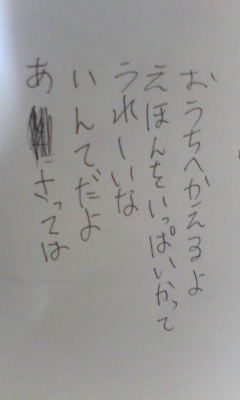 おうちへかえるよ
えほんをいっぱいかって
うれーいな
いんてだよ
あにさっては